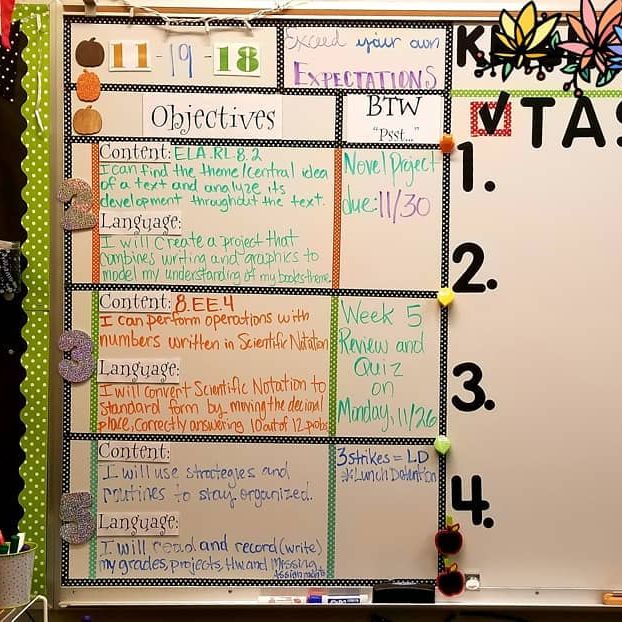 11-19-18
Exceed your own
EXPECTATIONS
Objectives
BTW
"Psst..."
2
Content: ELA.RL.8.2
I can find the theme/central idea
of a text and analyze its
development throughout the text.
Language:
I will create a project that
combines writing and graphics to
model my understanding of my books theme.
Novel Project
due: 11/30
3
Content: 8.EE.4
I can perform operations with
numbers written in Scientific Notation
Language:
I will convert Scientific Notation to
standard form by moving the decimal
place, correctly answering 10 out of 12 probs
Week 5
Review and
Quiz
on
Monday, 11/26
5
Content:
I will use strategies and
routines to stay organized.
Language:
I will read and record (write)
my grades, projects, Hw and Missing
Assignments
3 strikes = LD
*Lunch Detention
K
✓TAS
1.
2.
3.
4.